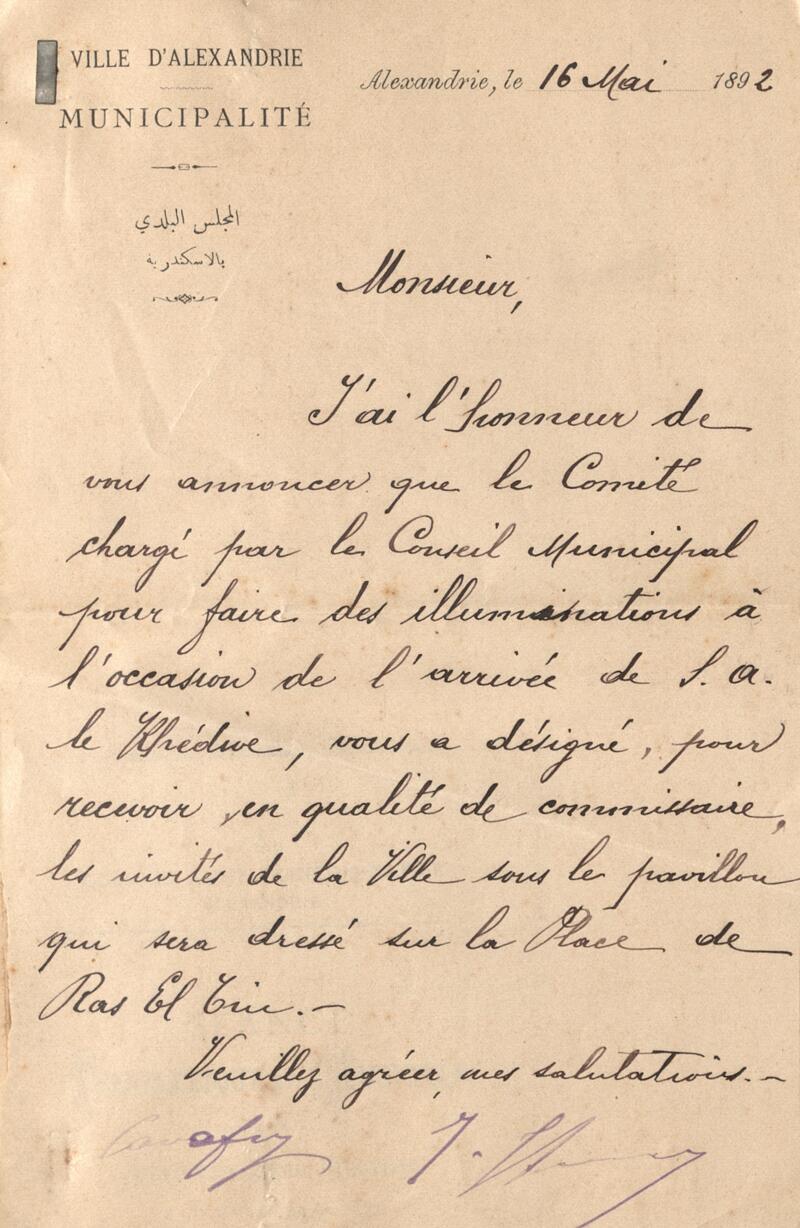 VILLE D'ALEXANDRIE
MUNICIPALITÉ
المجلس البلدي
بالاسكندرية
Alexandrie, le 16 Mai 1892
Monsieur,
J'ai l'honneur de
vous annoncer que le Comité
chargé par le Conseil Municipal
pour faire des illuminations à
l'occasion de l'arrivée de S. A.
le Khédive, vous a désigné, pour
recevoir, en qualité de commissaire,
les invités de la Ville sous le pavillon
qui sera dressé sur la Place de
Ras El Tin.—
Veuillez agréer, mes salutations.—
Cavafy